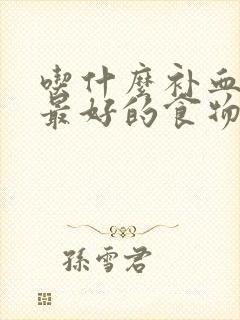 喫什麼补血
最好的食物
孫雪君